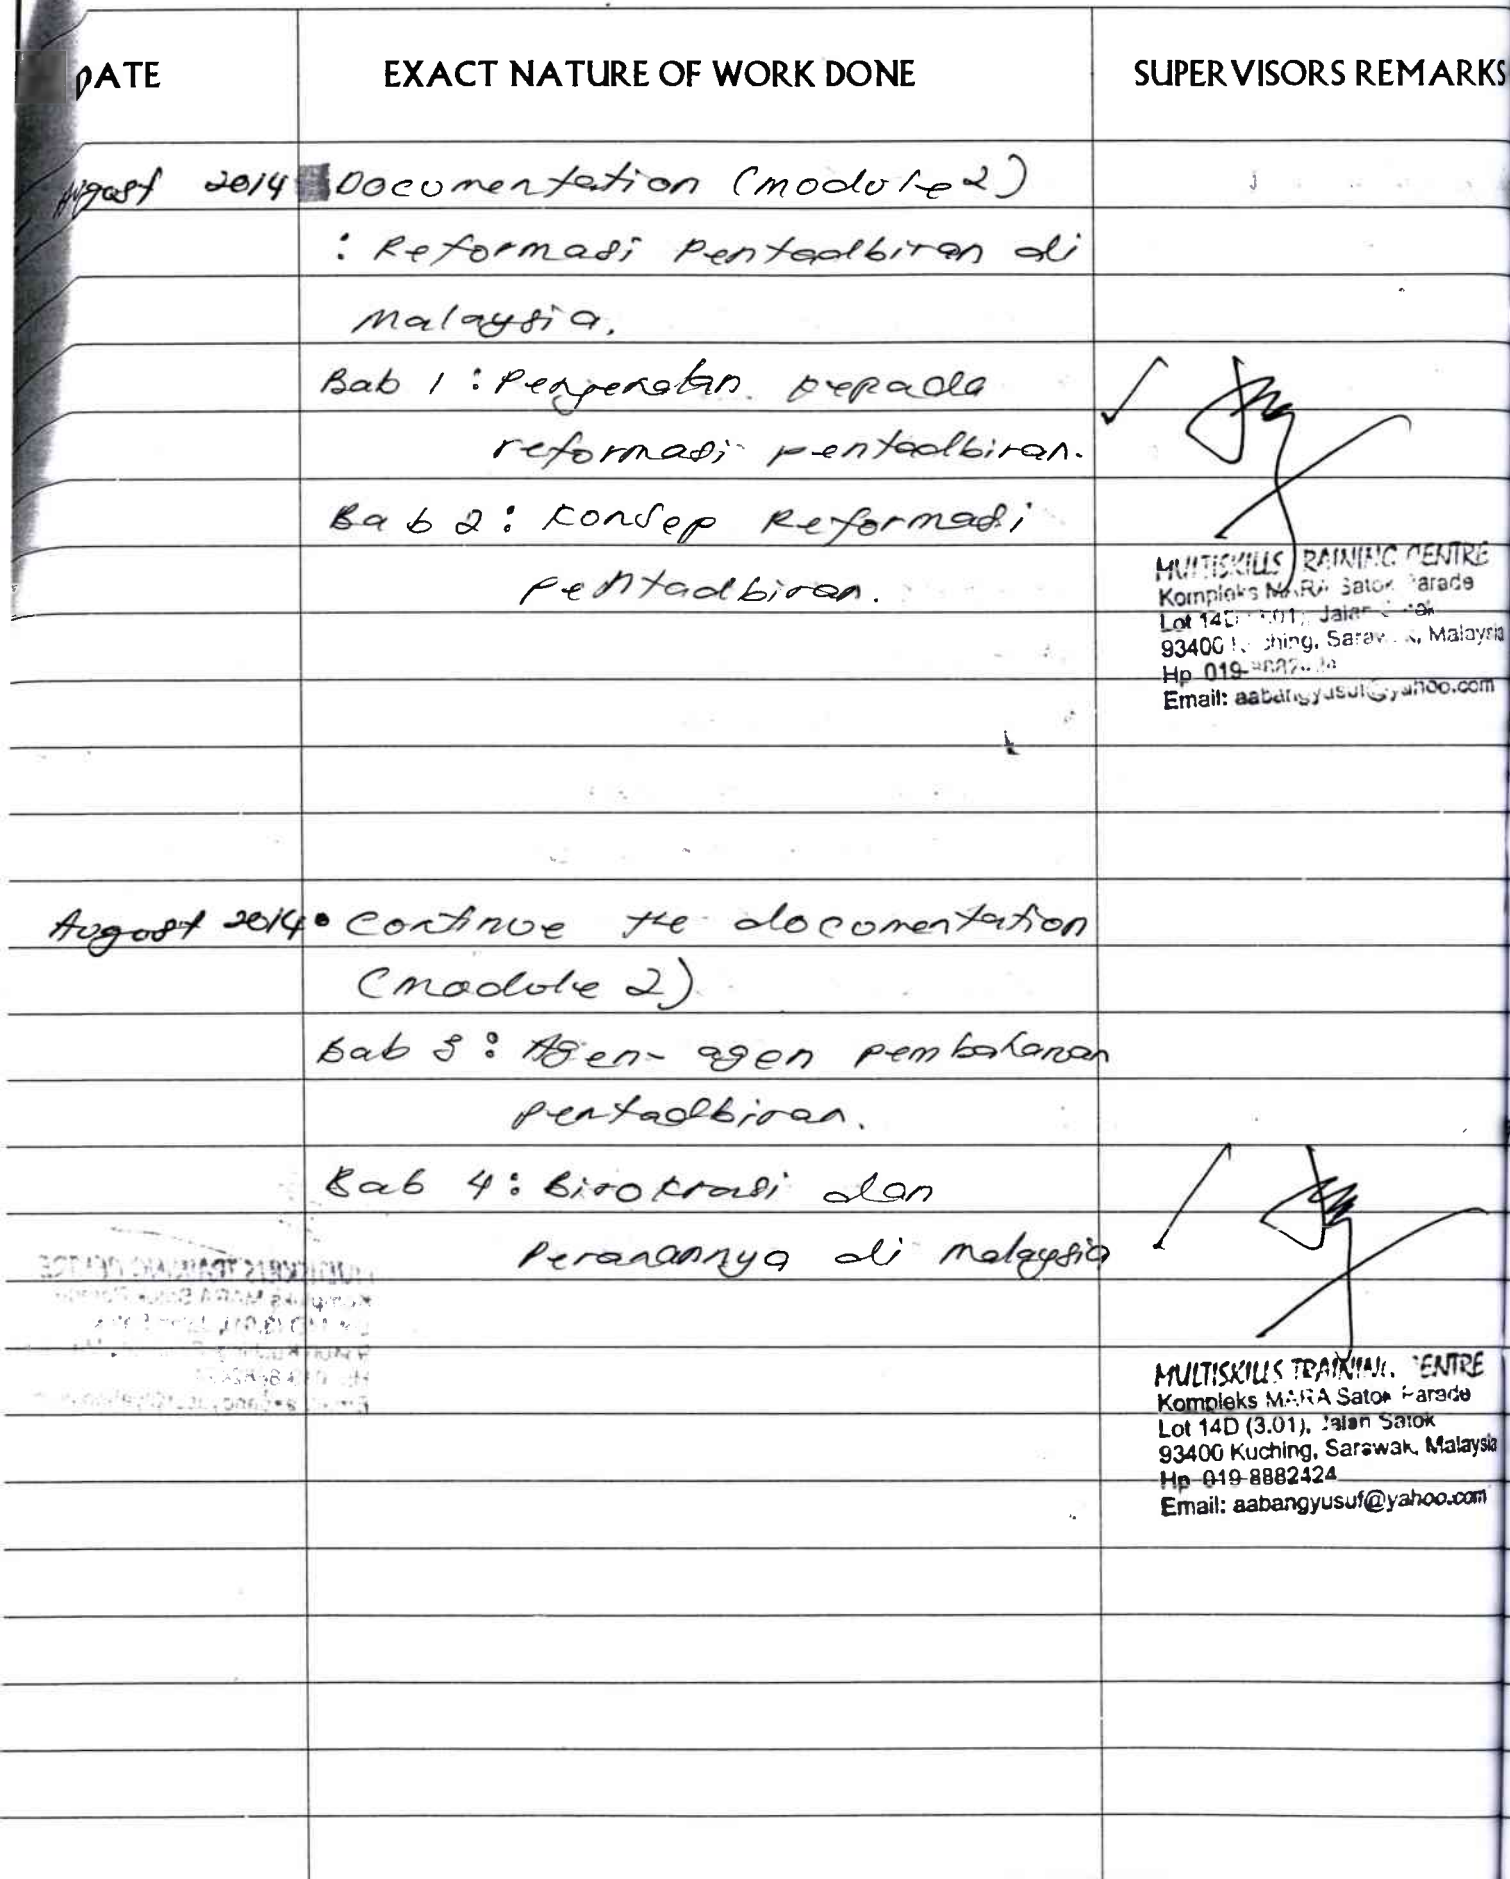 DATE EXACT NATURE OF WORK DONE SUPERVISORS REMARKS
August 2014 Documentation (module 2)
: Reformasi Pentadbiran di
Malaysia.
Bab 1 : Pengenalan kepada
reformasi pentadbiran.
Bab 2 : Konsep Reformasi
Pentadbiran.
MULTISKILLS TRAINING CENTRE
Kompleks MARA Satok Parade
Lot 14D Jalan
93400 Kuching, Sarawak, Malaysia
Hp 019-
Email: aabangyusuf@yahoo.com
August 2014 • Continue the documentation
(Module 2)
Bab 3 : Agen-agen pembaharuan
pentadbiran.
Bab 4 : Birokrasi dan
Peranannya di Malaysia
MULTISKILLS TRAINING CENTRE
Kompleks MARA Satok Parade
Lot 14D (3.01), Jalan Satok
93400 Kuching, Sarawak, Malaysia
Hp 019-8882424
Email: aabangyusuf@yahoo.com